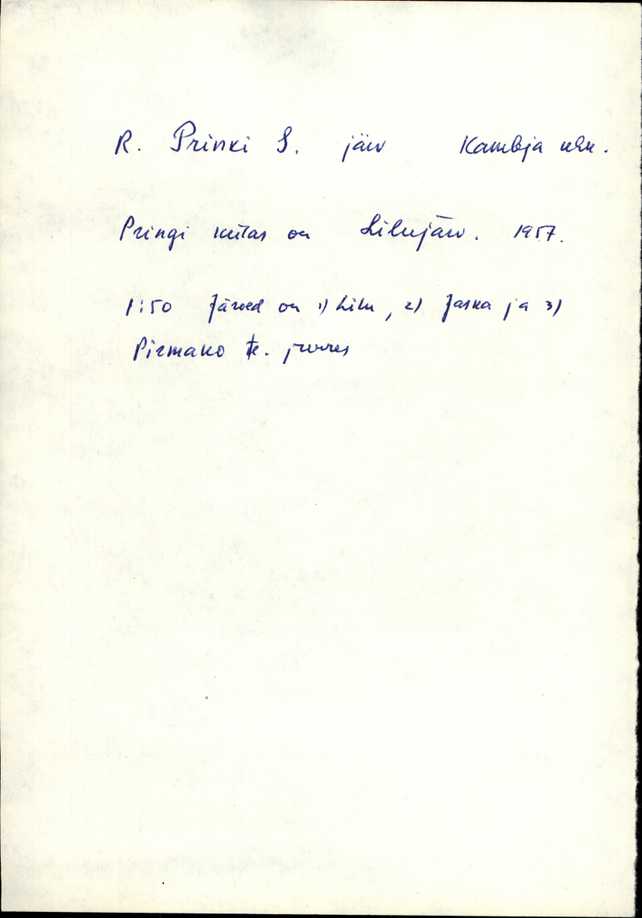 R. Prinki S. järv Kambja khk.
Pringi külas on Lilujärv. 1957.
1:50 Järved on 1) Lilu, 2) Jaska ja 3)
Pirmako tl. juures